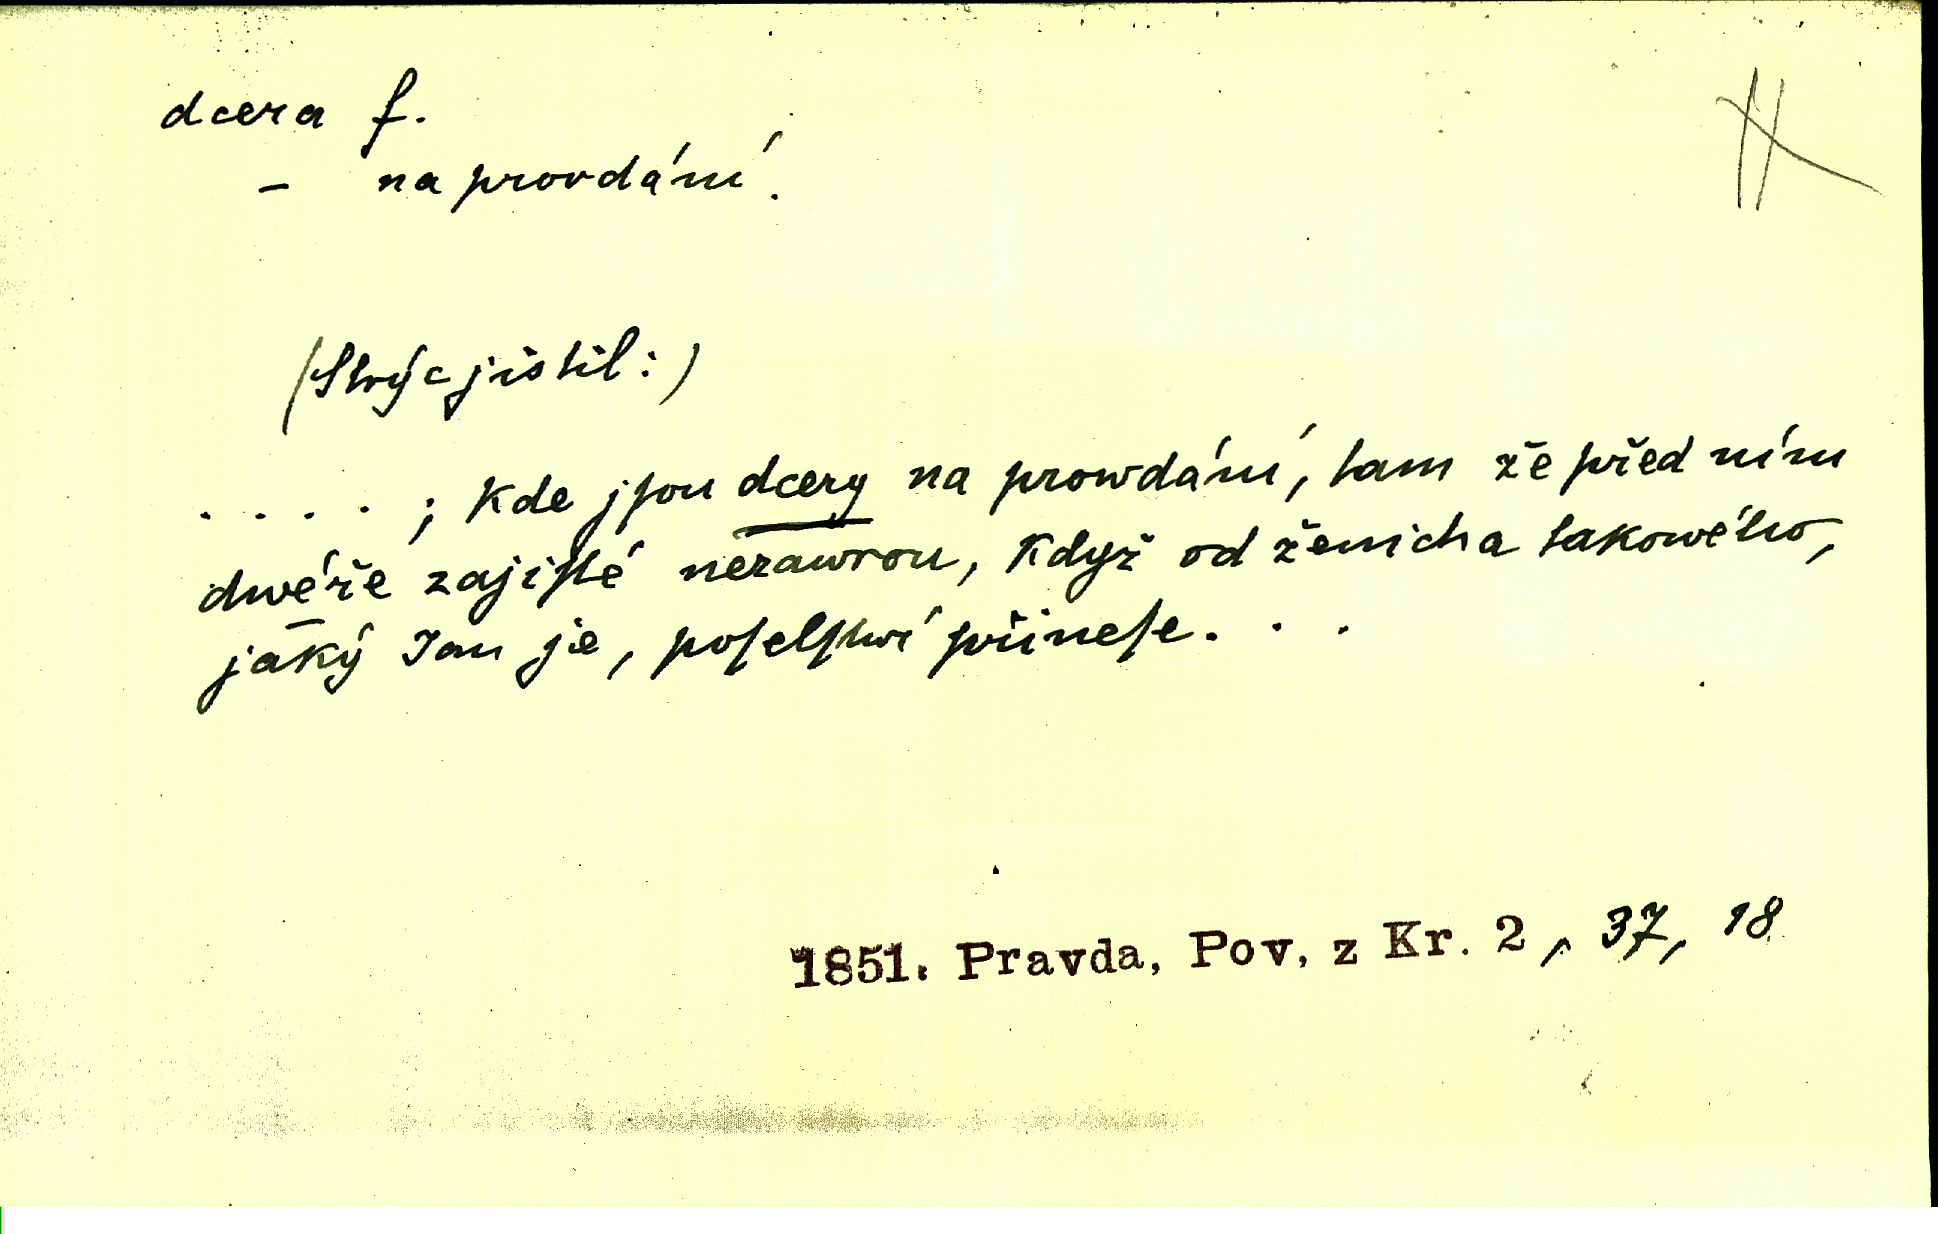 dcera f.
– na provdání.
(Strýc jistil:)
. . . . ; kde jſou dcery na prowdání, tam že před ním
dwéře zajiſté nezawrou, když od ženicha takowého,
jaký Jan je, poſelſtwí přineſe. . .
1851. Pravda, Pov. z Kr. 2, 37, 18